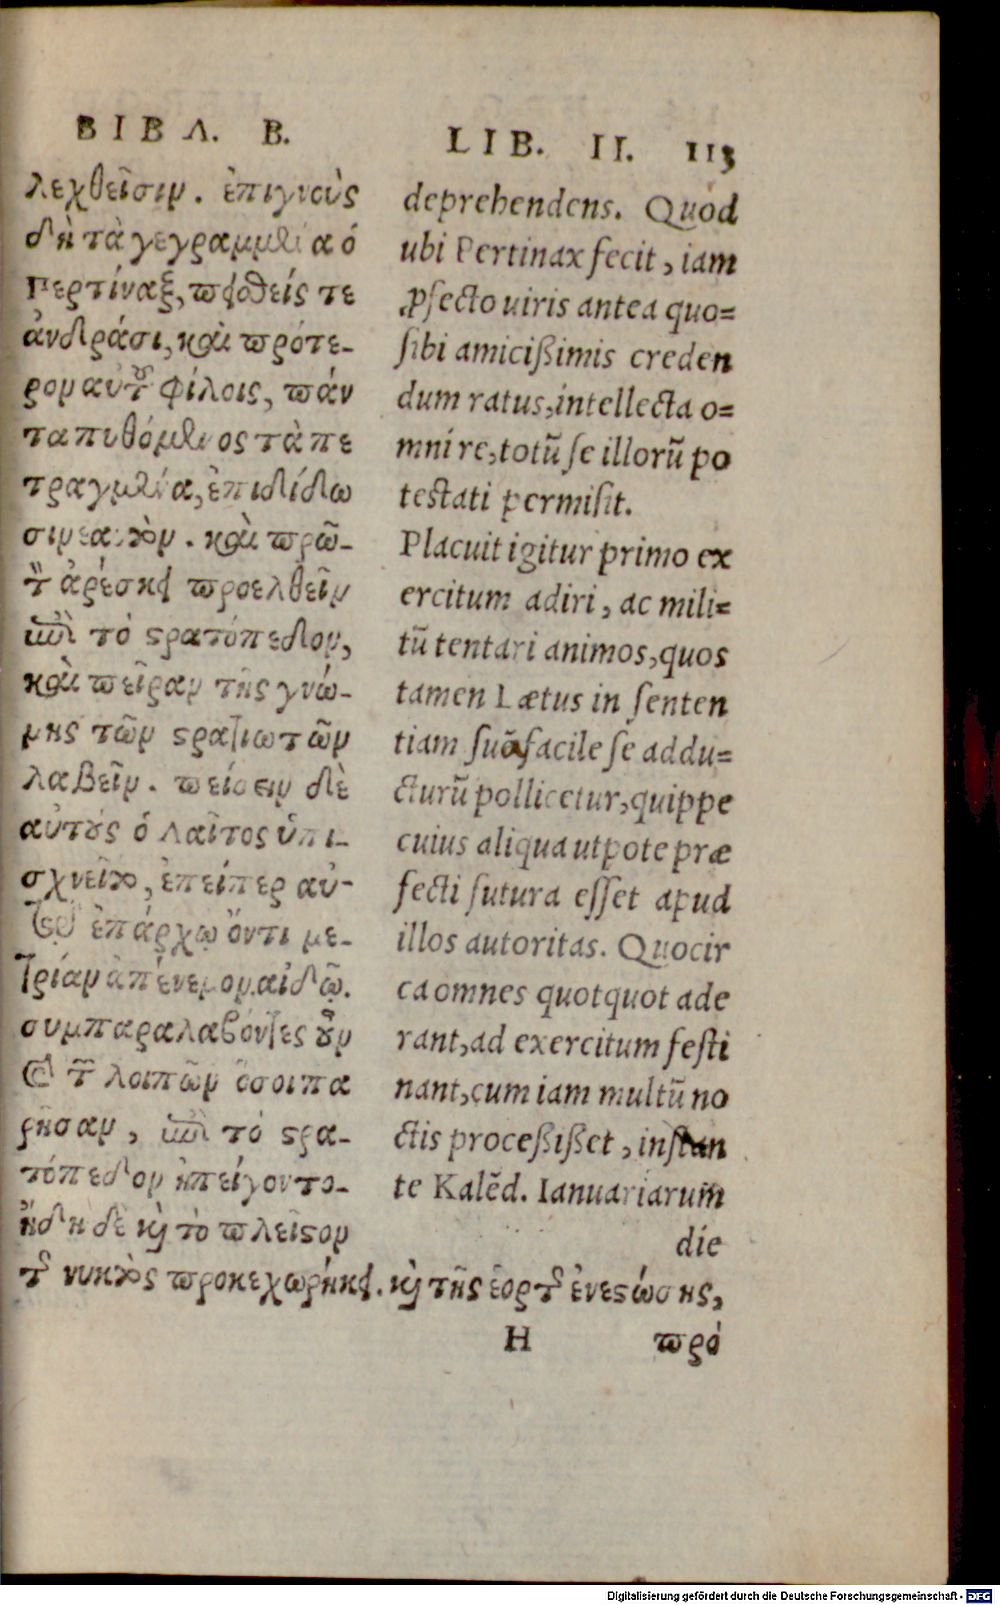 ΒΙΒΛ. Β.
λεχθεῖσιν. ἐπιγνοὺς
δὴ τὰ γεγραμμένα ὁ
Περτίναξ, πιϛοθείς τε
ἀνδράσι, καὶ πρότε-
ρον αὐτοῦ φίλοις, πάν
τα πυθόμενος τὰ πε
πραγμένα, ἐπιδίδω
σιν ἑαυτὸν. καὶ πρῶ-
ἀρέσκει προελθεῖν
ἐπὶ τὸ ϛρατόπεδον,
καὶ πεῖραν τῆς γνώ-
μης τῶν ϛρατιωτῶν
λαβεῖν. πείσειν δὲ
αὐτοὺς ὁ Λαῖτος ὑπι-
σχνεῖτο, ἐπείπερ αὐ-
ἐπάρχῳ ὄντι με-
τρίαν ἀπένεμον αἰδῶ.
συμπαραλαβόντες οὖν
τῶν λοιπῶν ὅσοι πα
ρῆσαν, ἐπὶ τὸ ϛρα-
τόπεδον ἠπείγοντο-
ἤδη δὲ καὶ τὸ πλεῖϛον
τῆς νυκτὸς προκεχωρήκει. καὶ τῆς ἑορτῆς ἐνεϛώσης,
LIB. II. 113
deprehendens. Quod
ubi Pertinax fecit, iam
ꝓfecto uiris antea quo=
sibi amicißimis creden
dum ratus, intellecta o=
mni re, totũ se illorũ po
testati permisit.
Placuit igitur primo ex
ercitum adiri, ac mili=
tũ tentari animos, quos
tamen Lætus in senten
tiam suã facile se addu=
cturũ pollicetur, quippe
cuius aliqua utpote præ
fecti futura esset apud
illos autoritas. Quocir
ca omnes quotquot ade
rant, ad exercitum festi
nant, cum iam multũ no
ctis proceßißet, instan
te Kalẽd. Ianuariarum
die
H πρό
Digitalisierung gefördert durch die Deutsche Forschungsgemeinschaft - DFG